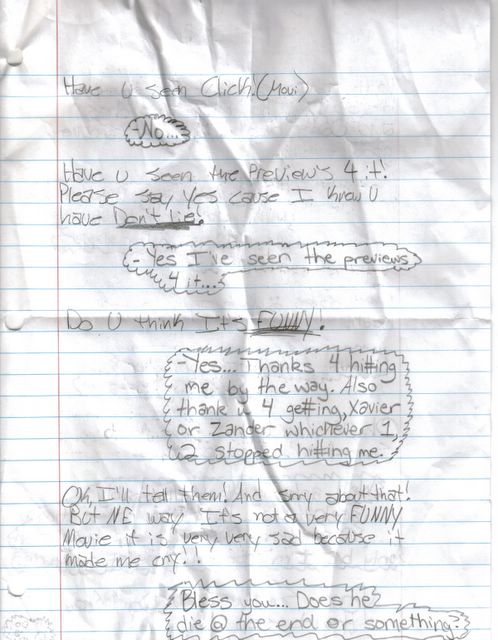 Have U seen Click! (Movi)
-No...
Have U seen the Preview's 4 it!
Please say Yes cause I know U
have Don't lie!
- Yes I've seen the previews
4 it...
Do U think It's FUNNY!
-Yes... Thanks 4 hitting
me by the way. Also
thank u 4 getting, Xavier
or Zander whichever 1,
2 stopped hitting me.
Oh, I'll tell them! And sorry about that!
But NE way It's not a very FUNNY
Movie it is very very sad because it
made me cry!!
Bless you... Does he
die @ the end or something?